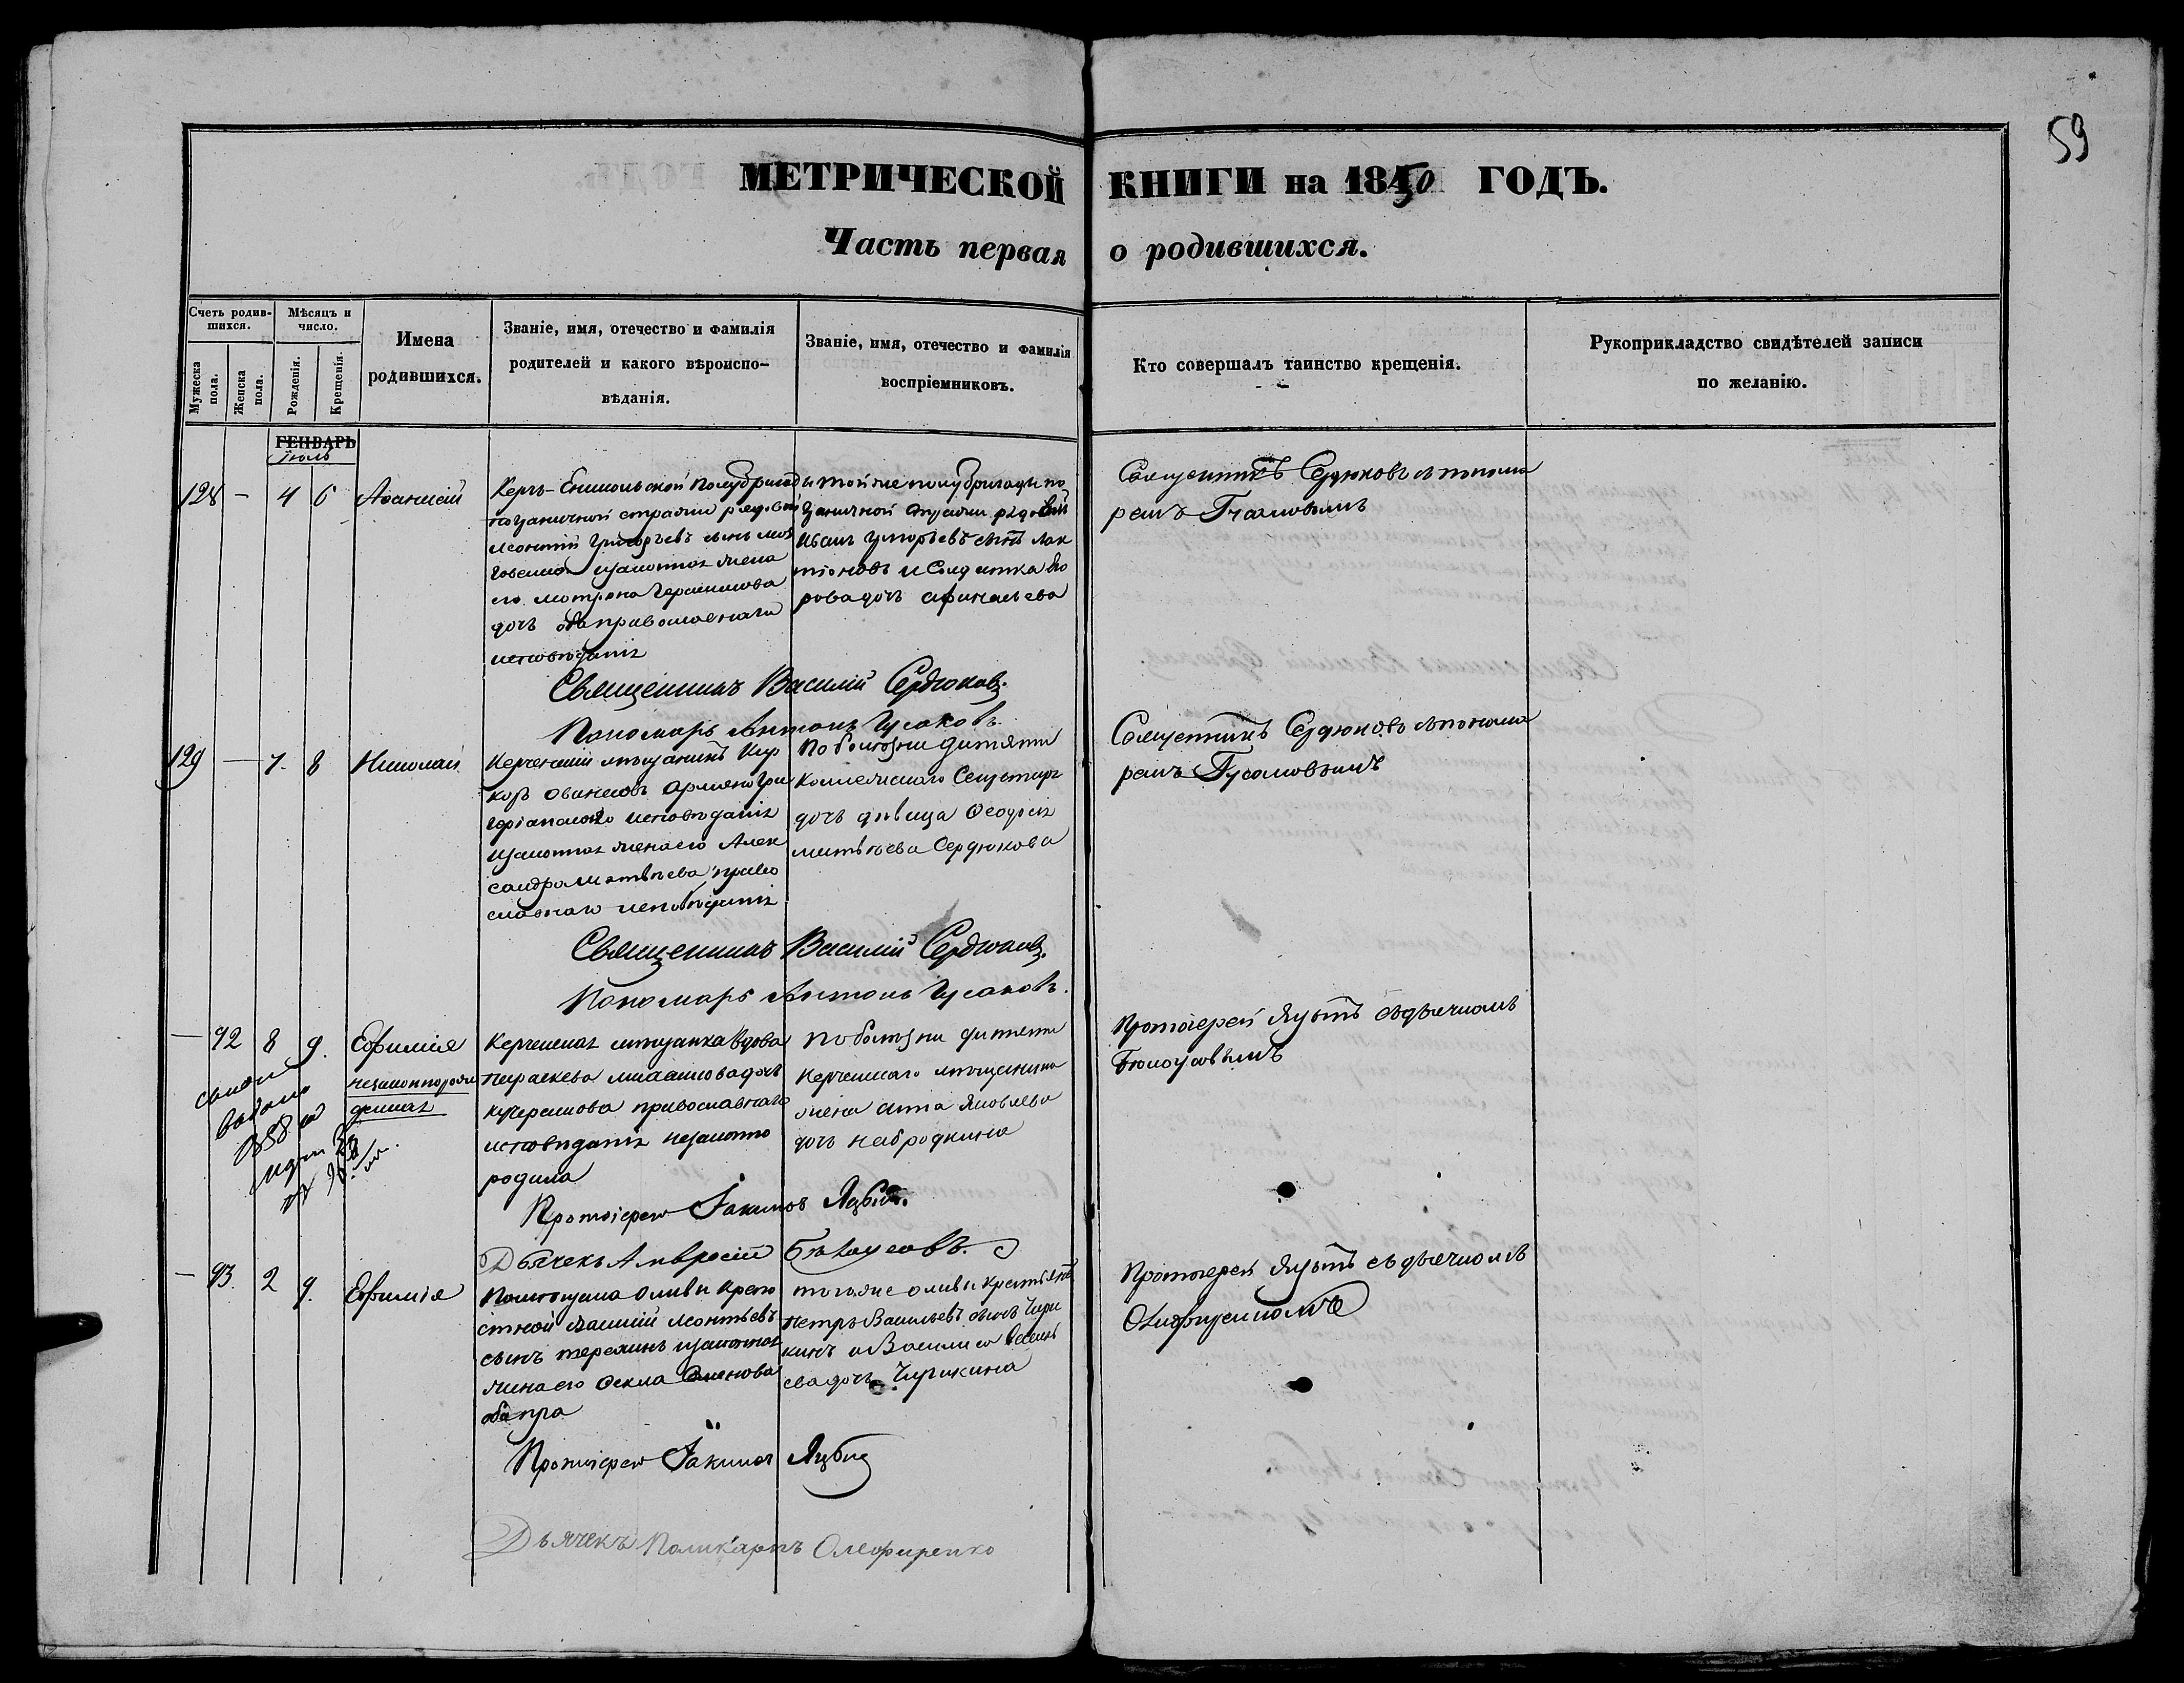 59
МЕТРИЧЕСКОЙ КНИГИ на 1850 ГОДЪ.
Часть первая о родившихся.
Счетъ родив-
шихся.
Мужеска пола.
Женска пола.
Мѣсяцъ и
число.
Рожденія.
Крещенія.
Имена
родившихся.
Званіе, имя, отечество и фамилія
родителей и какого вѣроиспо-
вѣданія.
Званіе, имя, отечество и фамилія
воспріемниковъ.
Кто совершалъ таинство крещенія.
Рукоприкладство свидѣтелей записи
по желанію.
ГЕНВАРЬ
Іюль
128 - 4 6 Аѳанасій
Керчь-Еникольской Полубригады
пограничной стражи рядовой
Леонтій Григорьевъ сынъ
законная жена
его Матрона Герасимова
дочь оба православнаго
исповѣданія
той же полубригады по
граничной стражи рядовой
Иванъ Григорьевъ сынъ Лак
тіоновъ и Солдатка
дочь Афанасьева
Священникъ Сердюковъ съ понома
ремъ Гусаковымъ
Священникъ Василій Сердюковъ.
Пономарь Антонъ Гусаковъ.
129 - 7. 8 Николай
Керченскій мѣщанинъ Кир
коръ Ованесовъ Армяно Гри
горіанскаго исповѣданія
законная жена его Алек
сандра Матвѣева право
славнаго исповѣданія
По болѣзни дитяти
Коллежскаго Секретаря
дочь дѣвица Ѳеодосія
Матвѣева Сердюкова
Священникъ Сердюковъ съ понома
ремъ Гусаковымъ
Священникъ Василій Сердюковъ.
Пономарь Антонъ Гусаковъ.
- 92 8 9. Евфимія
незаконнорож
денная
Керченская мѣщанка вдова
Параскева дочь
Кучерамова православнаго
исповѣданія незаконно
родила
По болѣзни дитяти
Керченскаго мѣщанина
жена Анна Яковлева
дочь Набродкина
Протоіерей Яцутъ съ дьячкомъ
Бѣлоусовымъ
Протоіерей Іакимъ
Дьячекъ Амвросій Бѣлоусовъ.
- 93. 2 9. Евфимія
Помѣщика Оливы Крепо
стной Василій Леонтьевъ
сынъ законная
жена его Ѳекла Семенова
оба пра
того же Оливы крестьянъ
Петръ Васильевъ сынъ Чири
кинъ и Василиса
ева дочь Чирикина
Протоіерей съ дьячкомъ
Олефиренкомъ
Протоіерей Іакимъ
Дьячекъ Поликарпъ Олефиренко